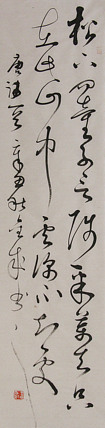 松下問童子言師採藥去只
在此山中雲深不知處
唐詩一首